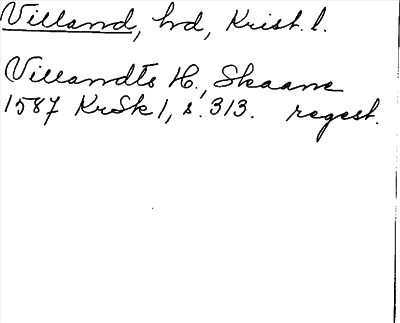 Villand, hd, Krist. l.
Villandts H., Skaane
1587 KrSk 1, s. 313. regest.